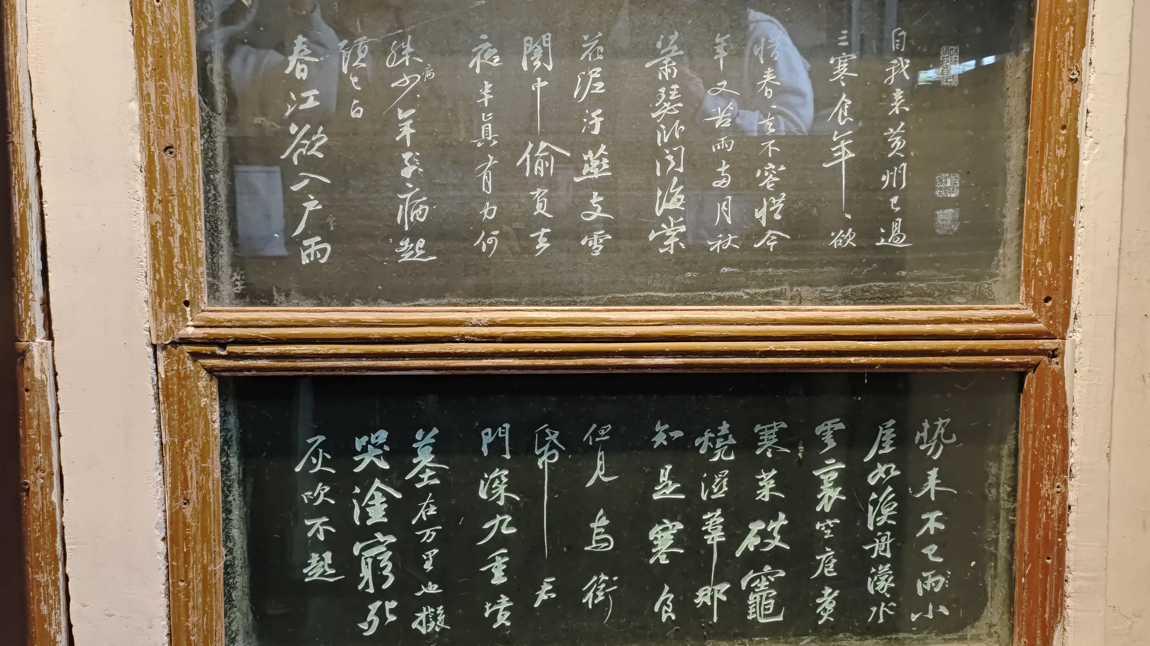 自我来黄州已過
三寒食年〻欲
惜春〻去不容惜今
年又苦雨兩月秋
蕭瑟卧聞海棠
花泥汙燕支雪
闇中偷負去
夜半真有力何
殊病少年子病起
頭已白
春江欲入户雨
勢来不已雨小
屋如漁舟濛〻水
雲裏空庖煮
寒菜破竈
燒濕葦那
知是寒食
但見烏銜
帋君
門深九重墳
墓在万里也擬
哭塗窮死
灰吹不起